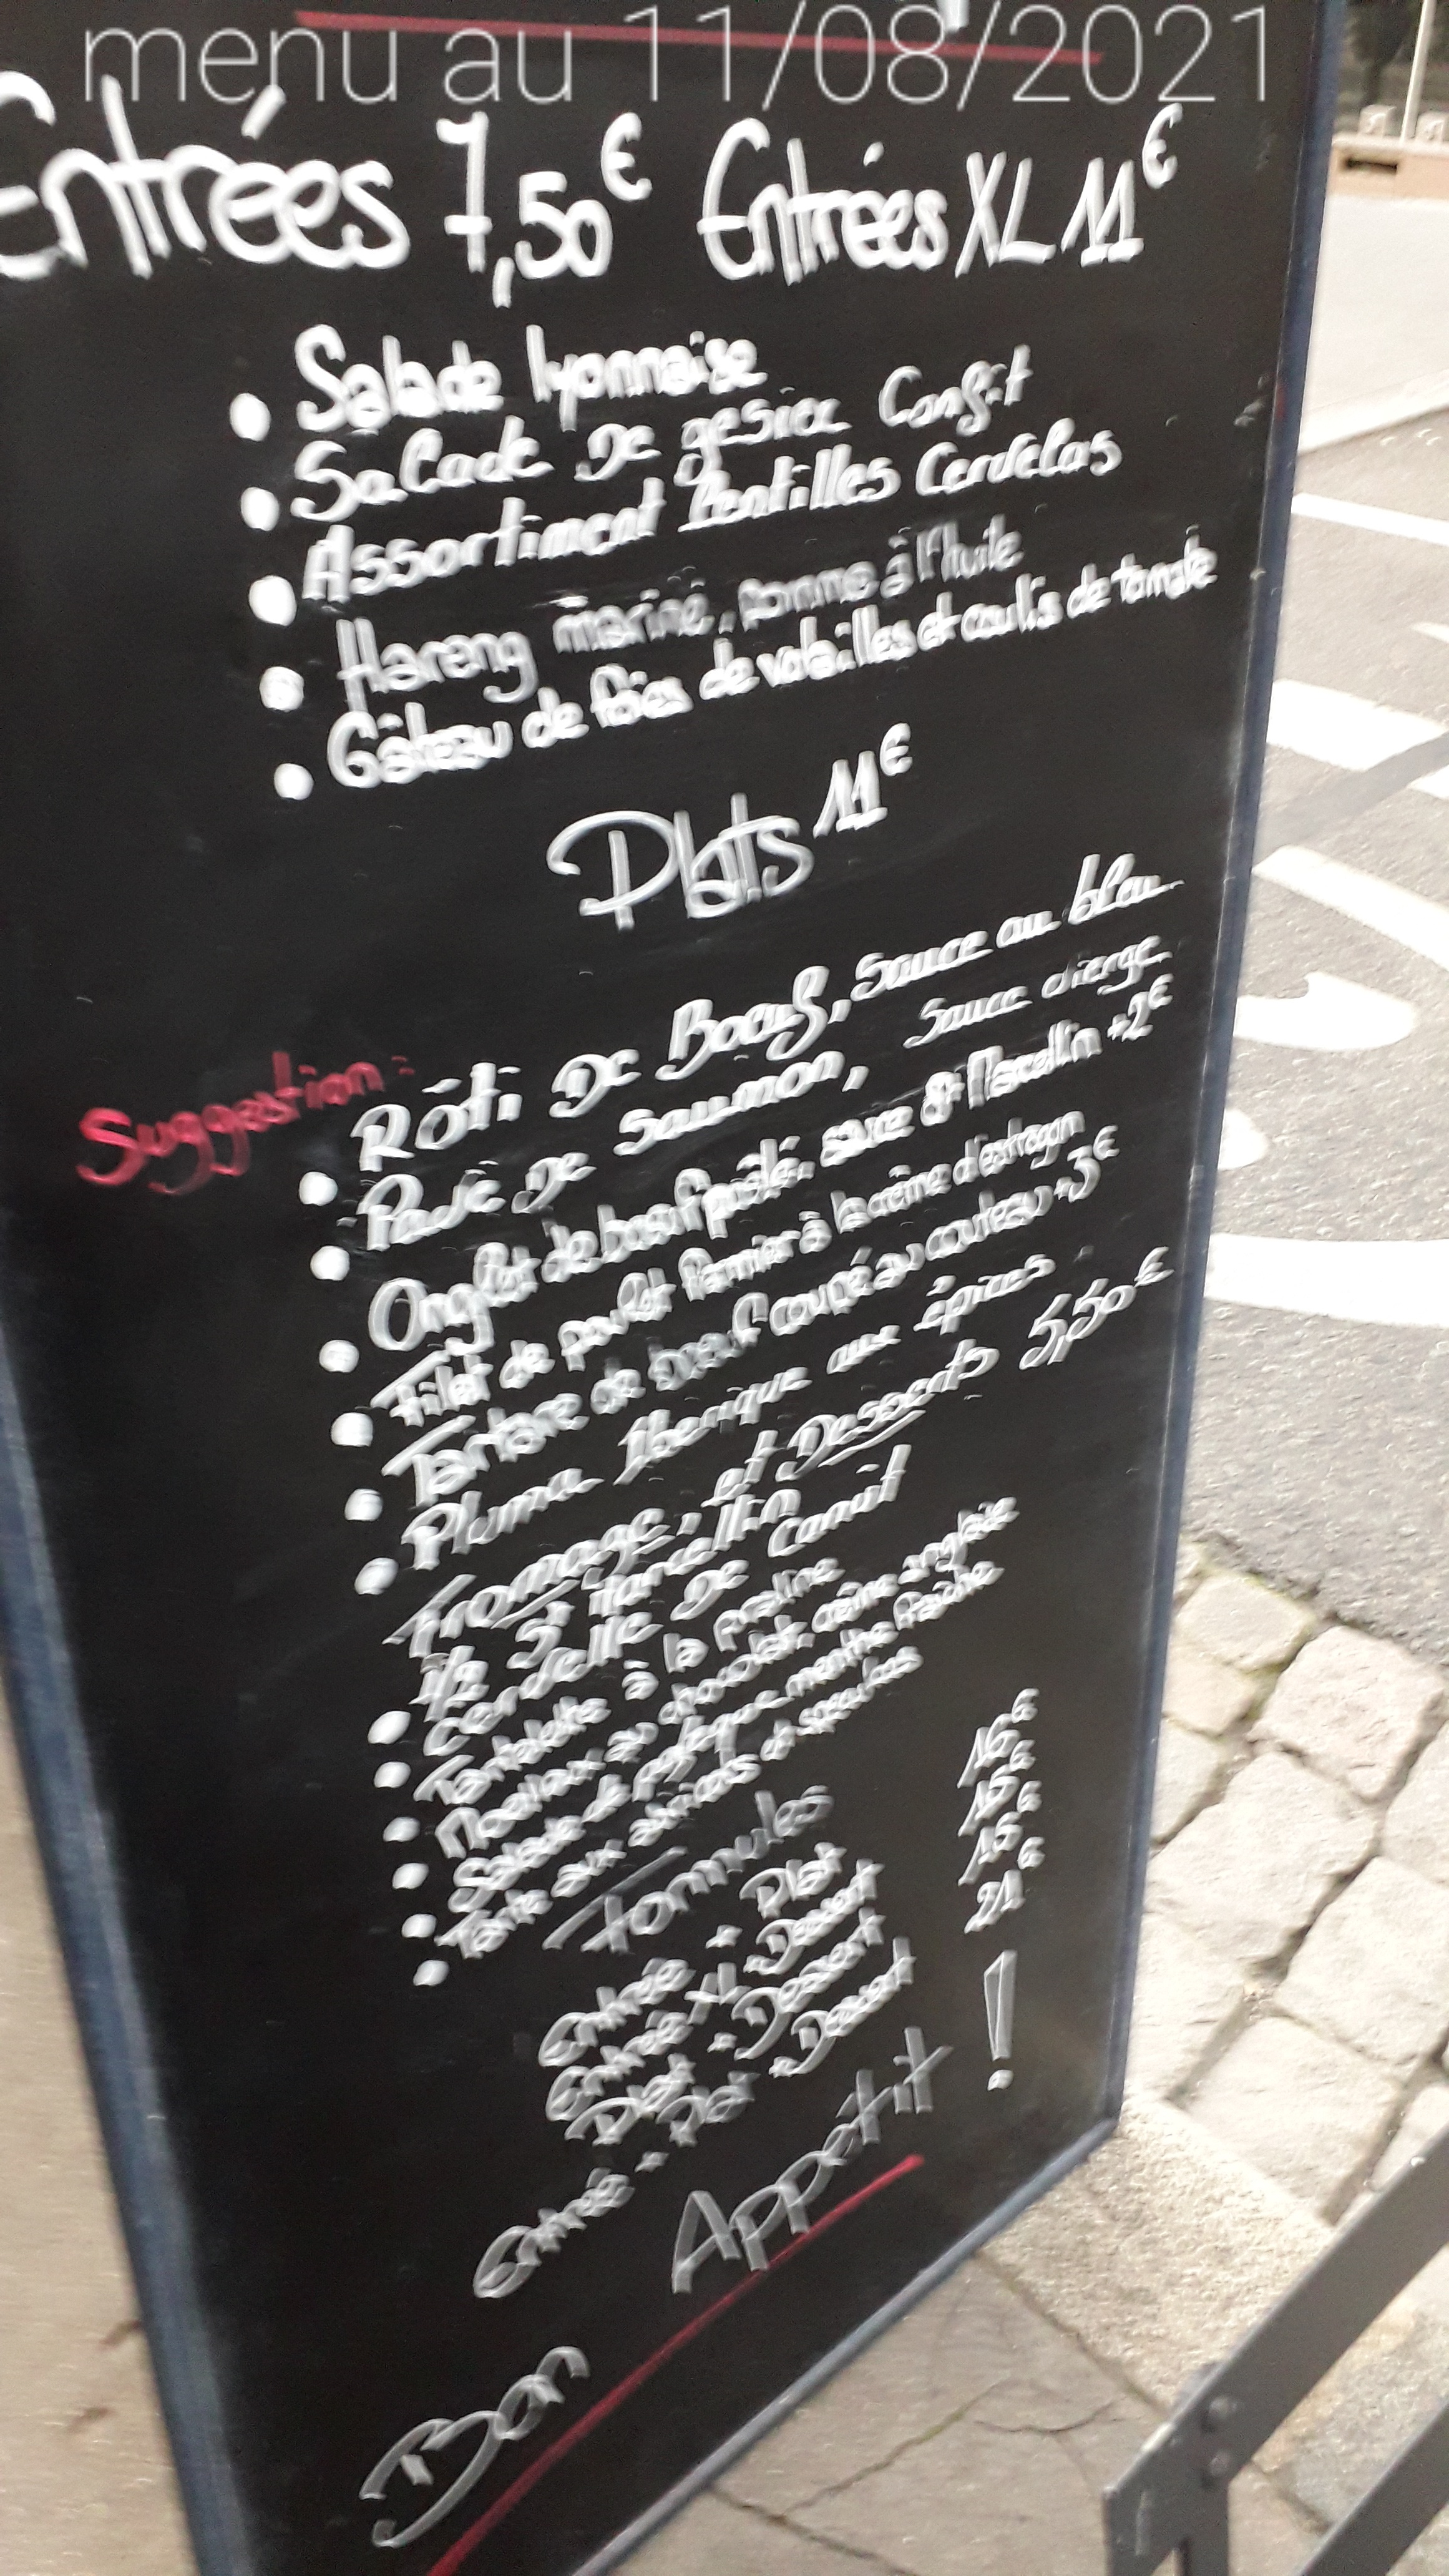 menu au 11/08/2021
Entrées 7,50€ Entrées XL 11€
Salade lyonnaise
Salade De gesier Confit
Assortiment Lentilles Cervelas
Hareng mariné, pomme à l'huile
Gâteau de foies de volailles et coulis de tomate
Plats 11€
Suggestion:
Rôti De Boeuf, Sauce au bleu
Pavé De Saumon, Sauce vierge
Onglet de boeuf poêlé, sauce St Marcellin +2€
Filet de poulet fermier à la crème d'estragon
Tartare de boeuf coupé au couteau +3€
Pluma Iberique aux épices
Fromage, et Desserts 5,50€
1/2 St Marcellin
Cervelle De Canut
Tartelette à la praline
Moelleux au chocolat, crème anglaise
Salade de pastèque menthe fraîche
Tarte aux abricots et speculoos
Formules
Entrée + Plat 16€
Entrée XL + Dessert 15€
Plat + Dessert 15€
Entrée + Plat + Dessert 21€
Bon Appétit !